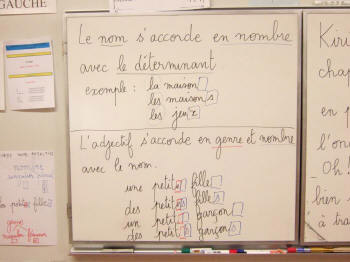 GAUCHE
Le nom s'accorde en nombre
avec le déterminant
exemple : la maison
les maisons
les jeux
L'adjectif s'accorde en genre et nombre
avec le nom.
une petite fille
des petites filles
un petit garçon
des petits garçons
Kiri
chap
en p
l'on
Oh!
bien s
à tra